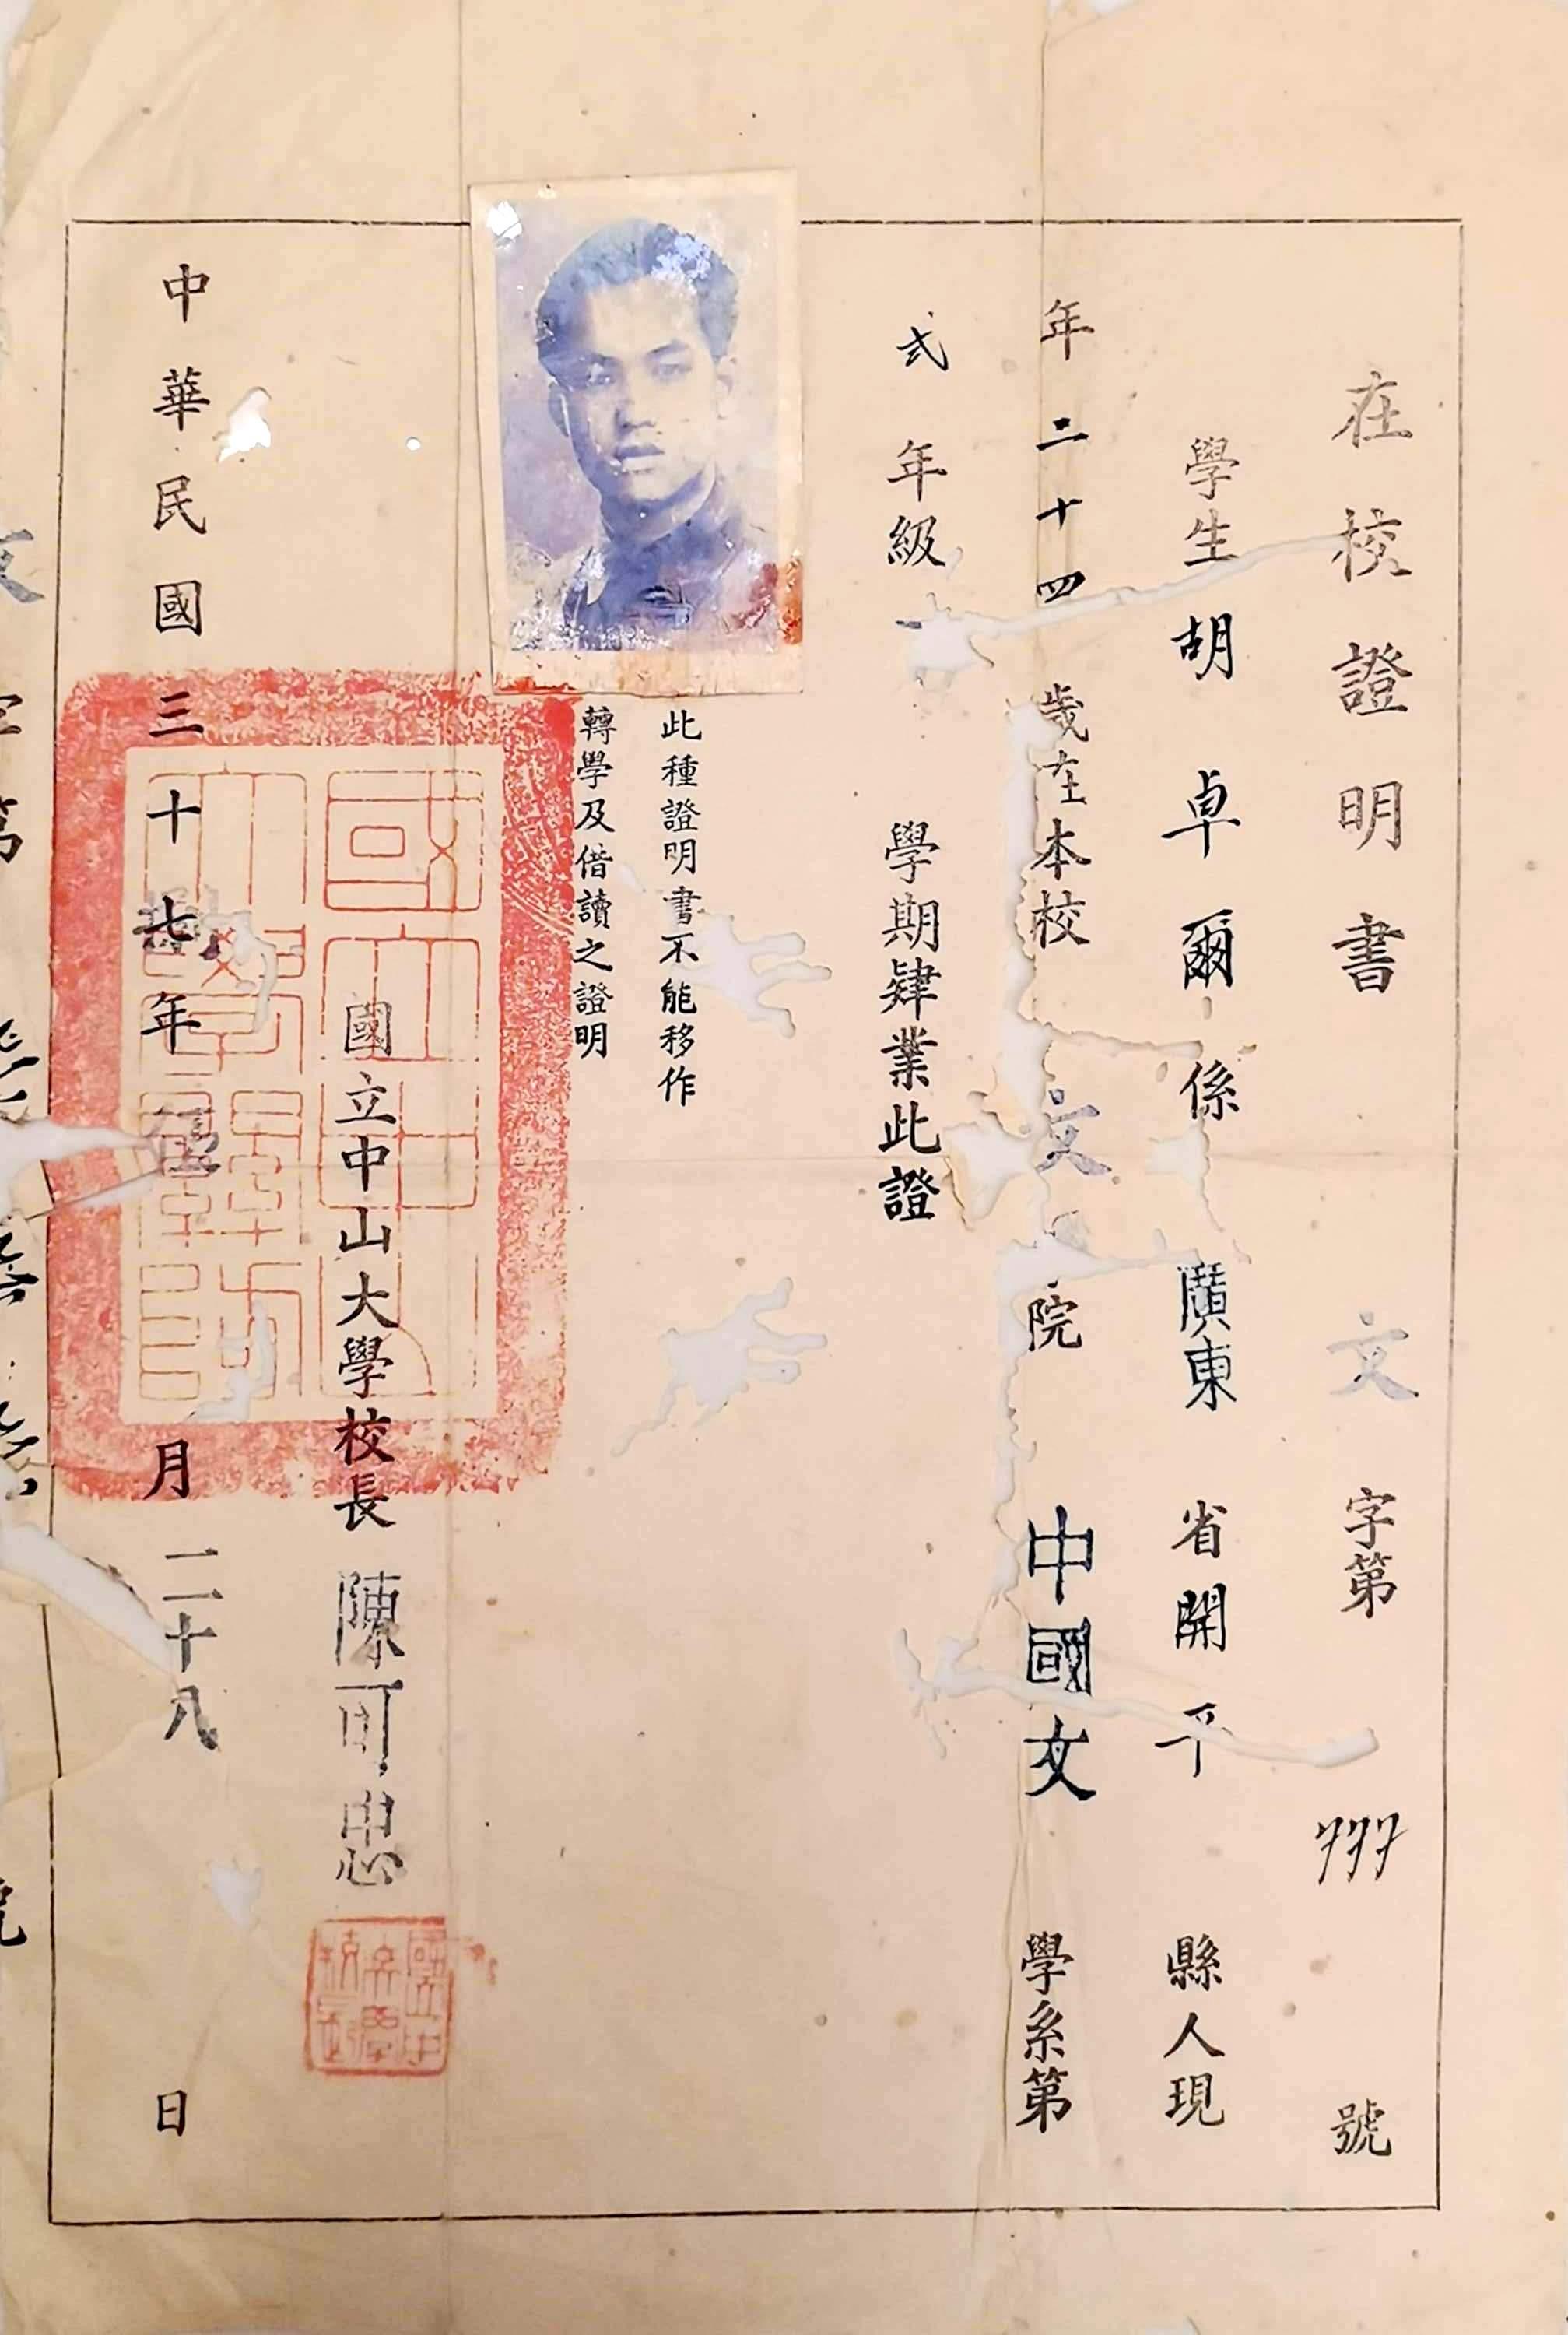 在校證明書 文字第 777 號
學生胡卓爾係廣東省開平縣人現
年二十四歲在本校文院中國文學系第
弍年級 學期肄業此證
此種證明書不能移作
轉學及借讀之證明
國立中山大學校長陳可忠
中華民國三十七年 月二十八日